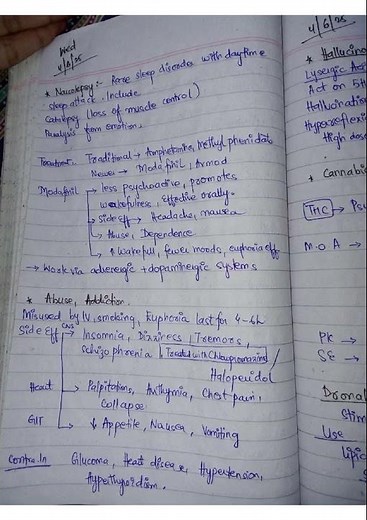 Wed
4/6/25
* Narcolepsy:- Rare sleep disorder with daytime
sleep attack. Include
Cataplexy (loss of muscle control)
Paralysis from emotion.
Treatment. Traditional → Amphetamine, Methyl phenidate
Newer → Modafnil, Armod
Modafnil → less psychoactive, promotes
wakefulness, Effective orally.
→ Side eff → Headache, nausea
→ Abuse, Dependence
→ ↑ Wakefull, fewer moods, euphoria eff
→ Work via adrenergic + dopaminergic systems
* Abuse, Addiction.
Misused by IV, smoking, Euphoria last for 4-6h
Side Eff CNS → Insomnia, Dizziness, Tremors,
Schizophrenia [Treated with Chlorpromazine] /
Haloperidol
Heart → Palpitations, Arithymia, Chest pain,
Collapse
GIT → ↓ Appetite, Nausea, Vomiting
Contra.In Glucoma, Heart disease, Hypertension,
Hyperthyroidism.
4/6/25
* Hallucino
Lysergic Ac
Act on 5H
Hallucination
Hyperreflexi
High dos
* Cannabis
THC → Psy
M.O A →
PK →
SE →
Drona
Stim
Use